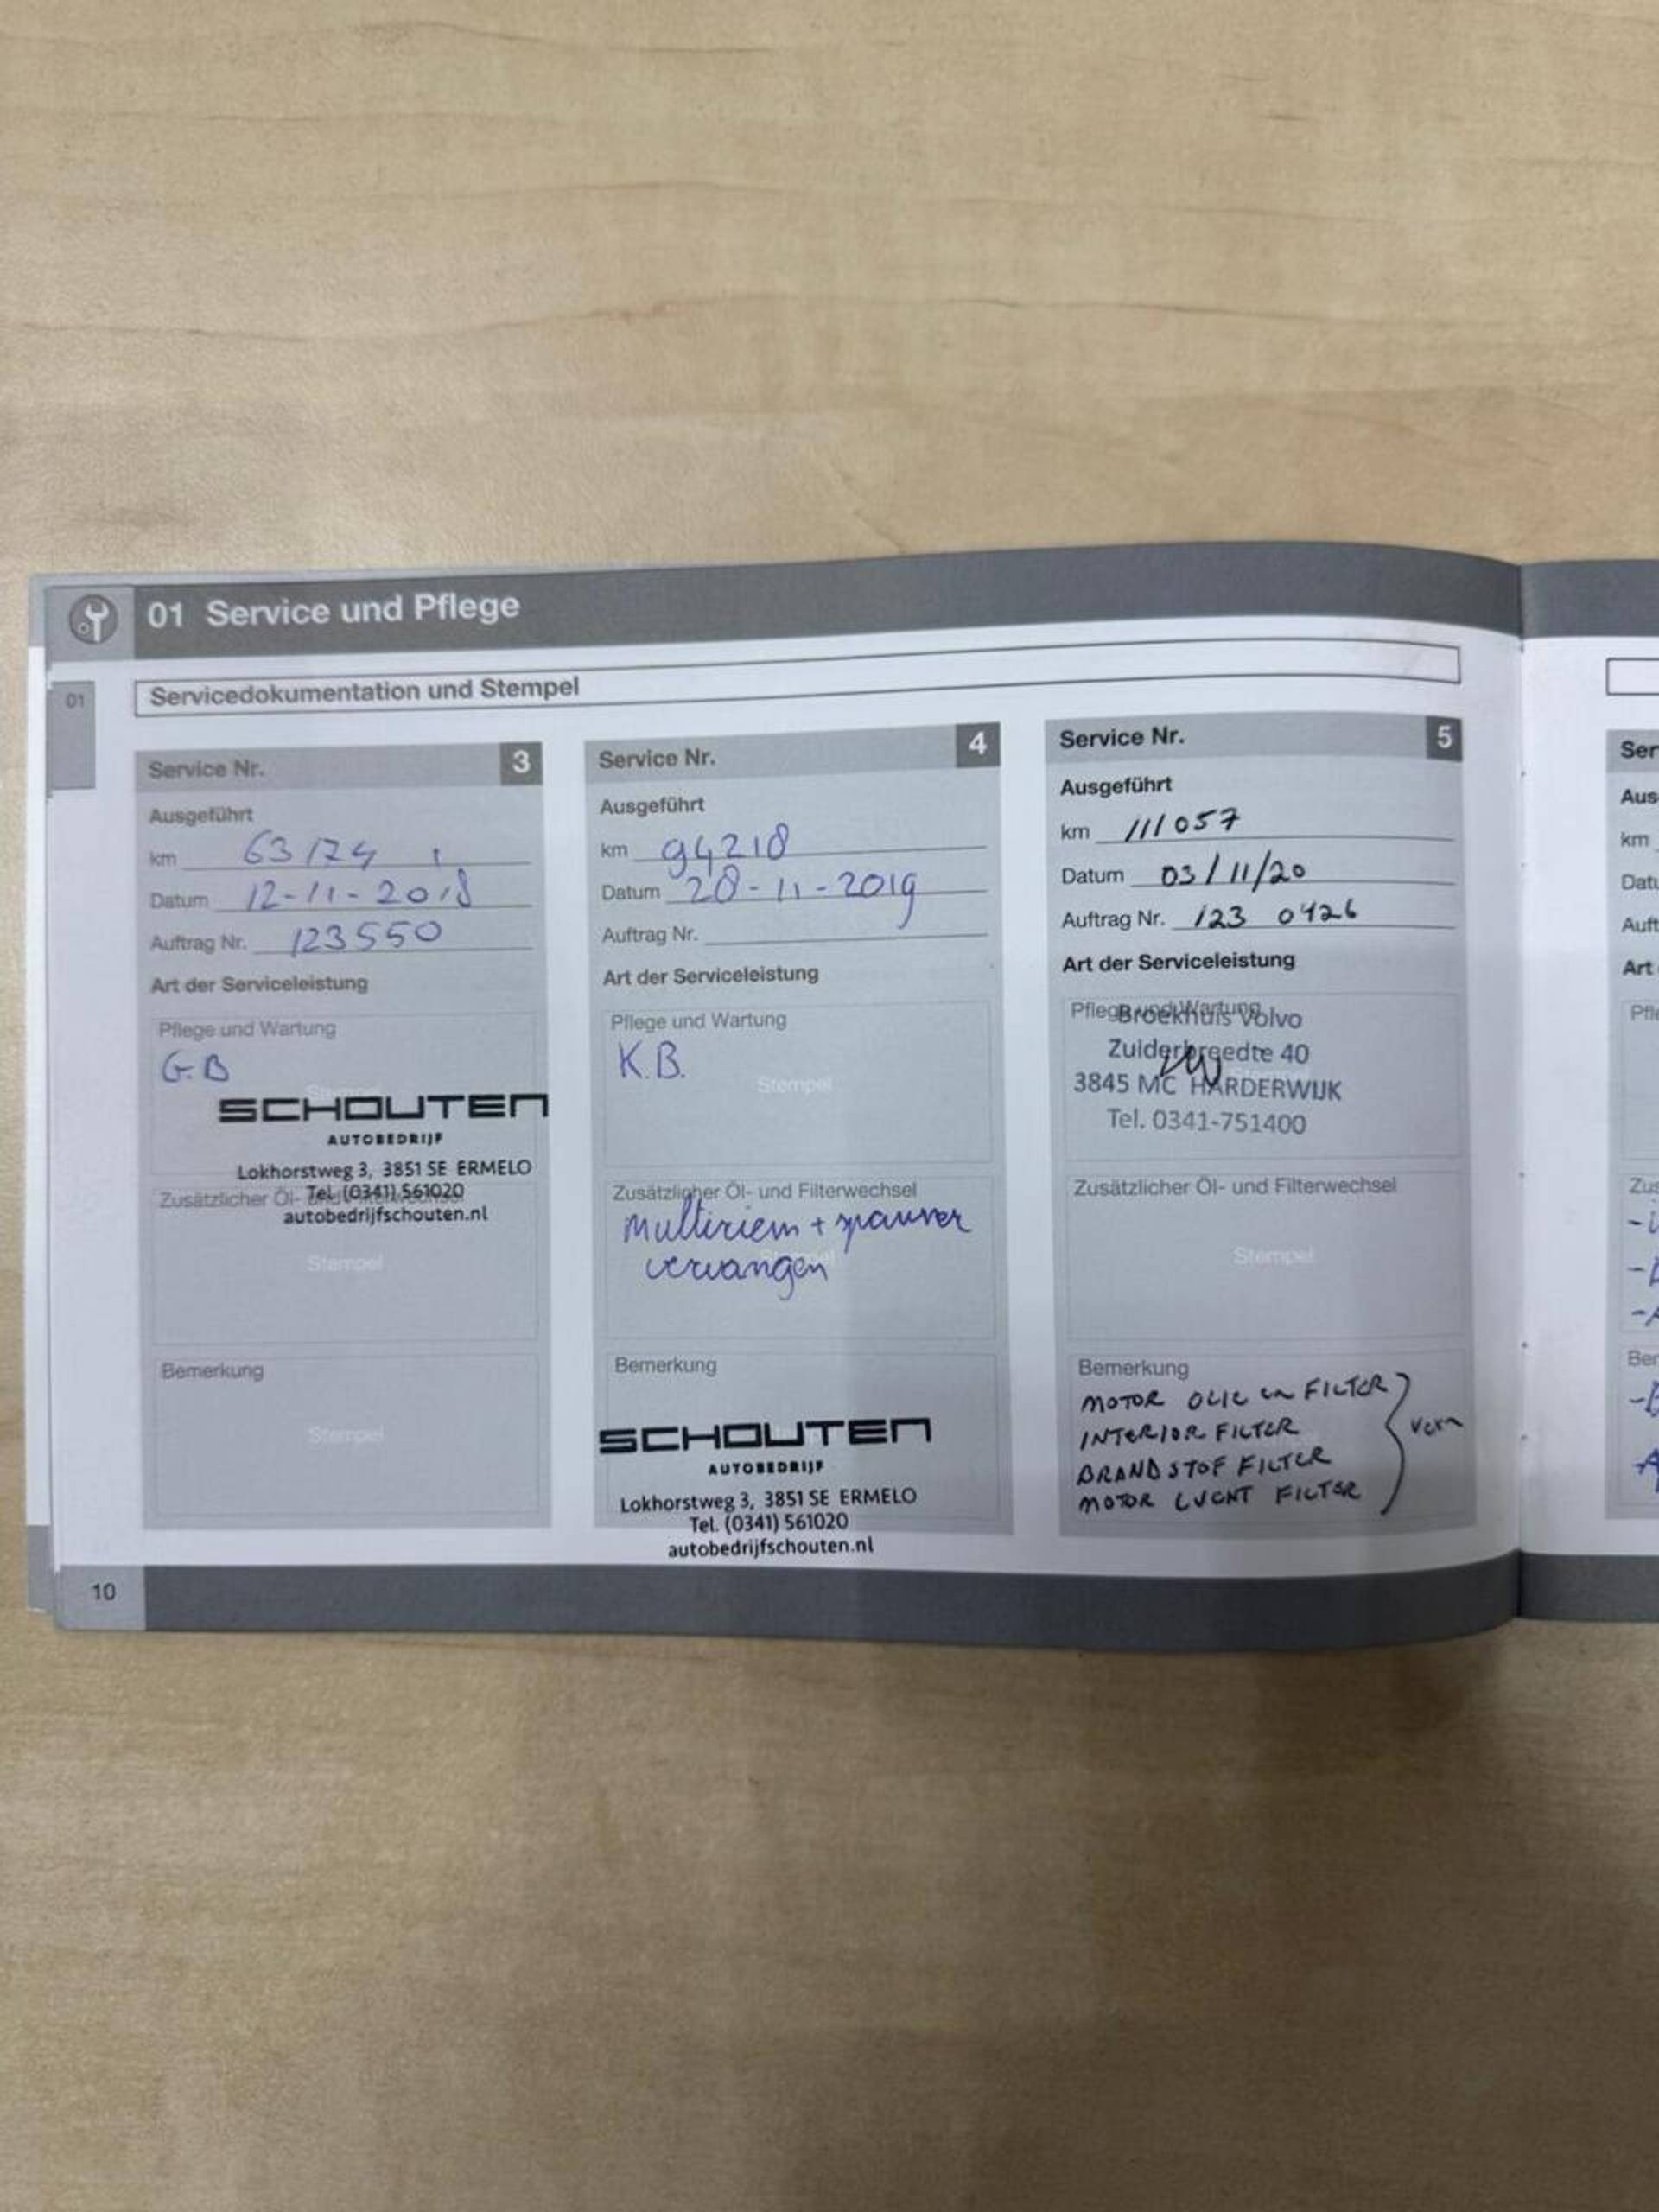 01 Service und Pflege
01
Servicedokumentation und Stempel
Service Nr. 3
Ausgeführt
km 63174
Datum 12-11-2018
Auftrag Nr. 123550
Art der Serviceleistung
Pflege und Wartung
G.B
Stempel
SCHOUTEN
AUTOBEDRIJF
Lokhorstweg 3, 3851 SE ERMELO
Tel. (0341) 561020
autobedrijfschouten.nl
Zusätzlicher Öl- und Filterwechsel
Stempel
Bemerkung
Stempel
Service Nr. 4
Ausgeführt
km 94218
Datum 28-11-2019
Auftrag Nr.
Art der Serviceleistung
Pflege und Wartung
K.B.
Stempel
Zusätzlicher Öl- und Filterwechsel
Multiriem + spanner
vervangen
Stempel
Bemerkung
SCHOUTEN
AUTOBEDRIJF
Lokhorstweg 3, 3851 SE ERMELO
Tel. (0341) 561020
autobedrijfschouten.nl
Service Nr. 5
Ausgeführt
km 111057
Datum 03/11/20
Auftrag Nr. 123 0426
Art der Serviceleistung
Pflege und Wartung
Broekhuis Volvo
Zuiderbreedte 40
3845 MC HARDERWIJK
Tel. 0341-751400
Zusätzlicher Öl- und Filterwechsel
Stempel
Bemerkung
MOTOR OLIE en FILTER
INTERIOR FILTER
BRANDSTOF FILTER
MOTOR LUCHT FILTER
Vern
10
Ser
Aus
km
Datu
Auft
Art
Pfle
Zus
Ber